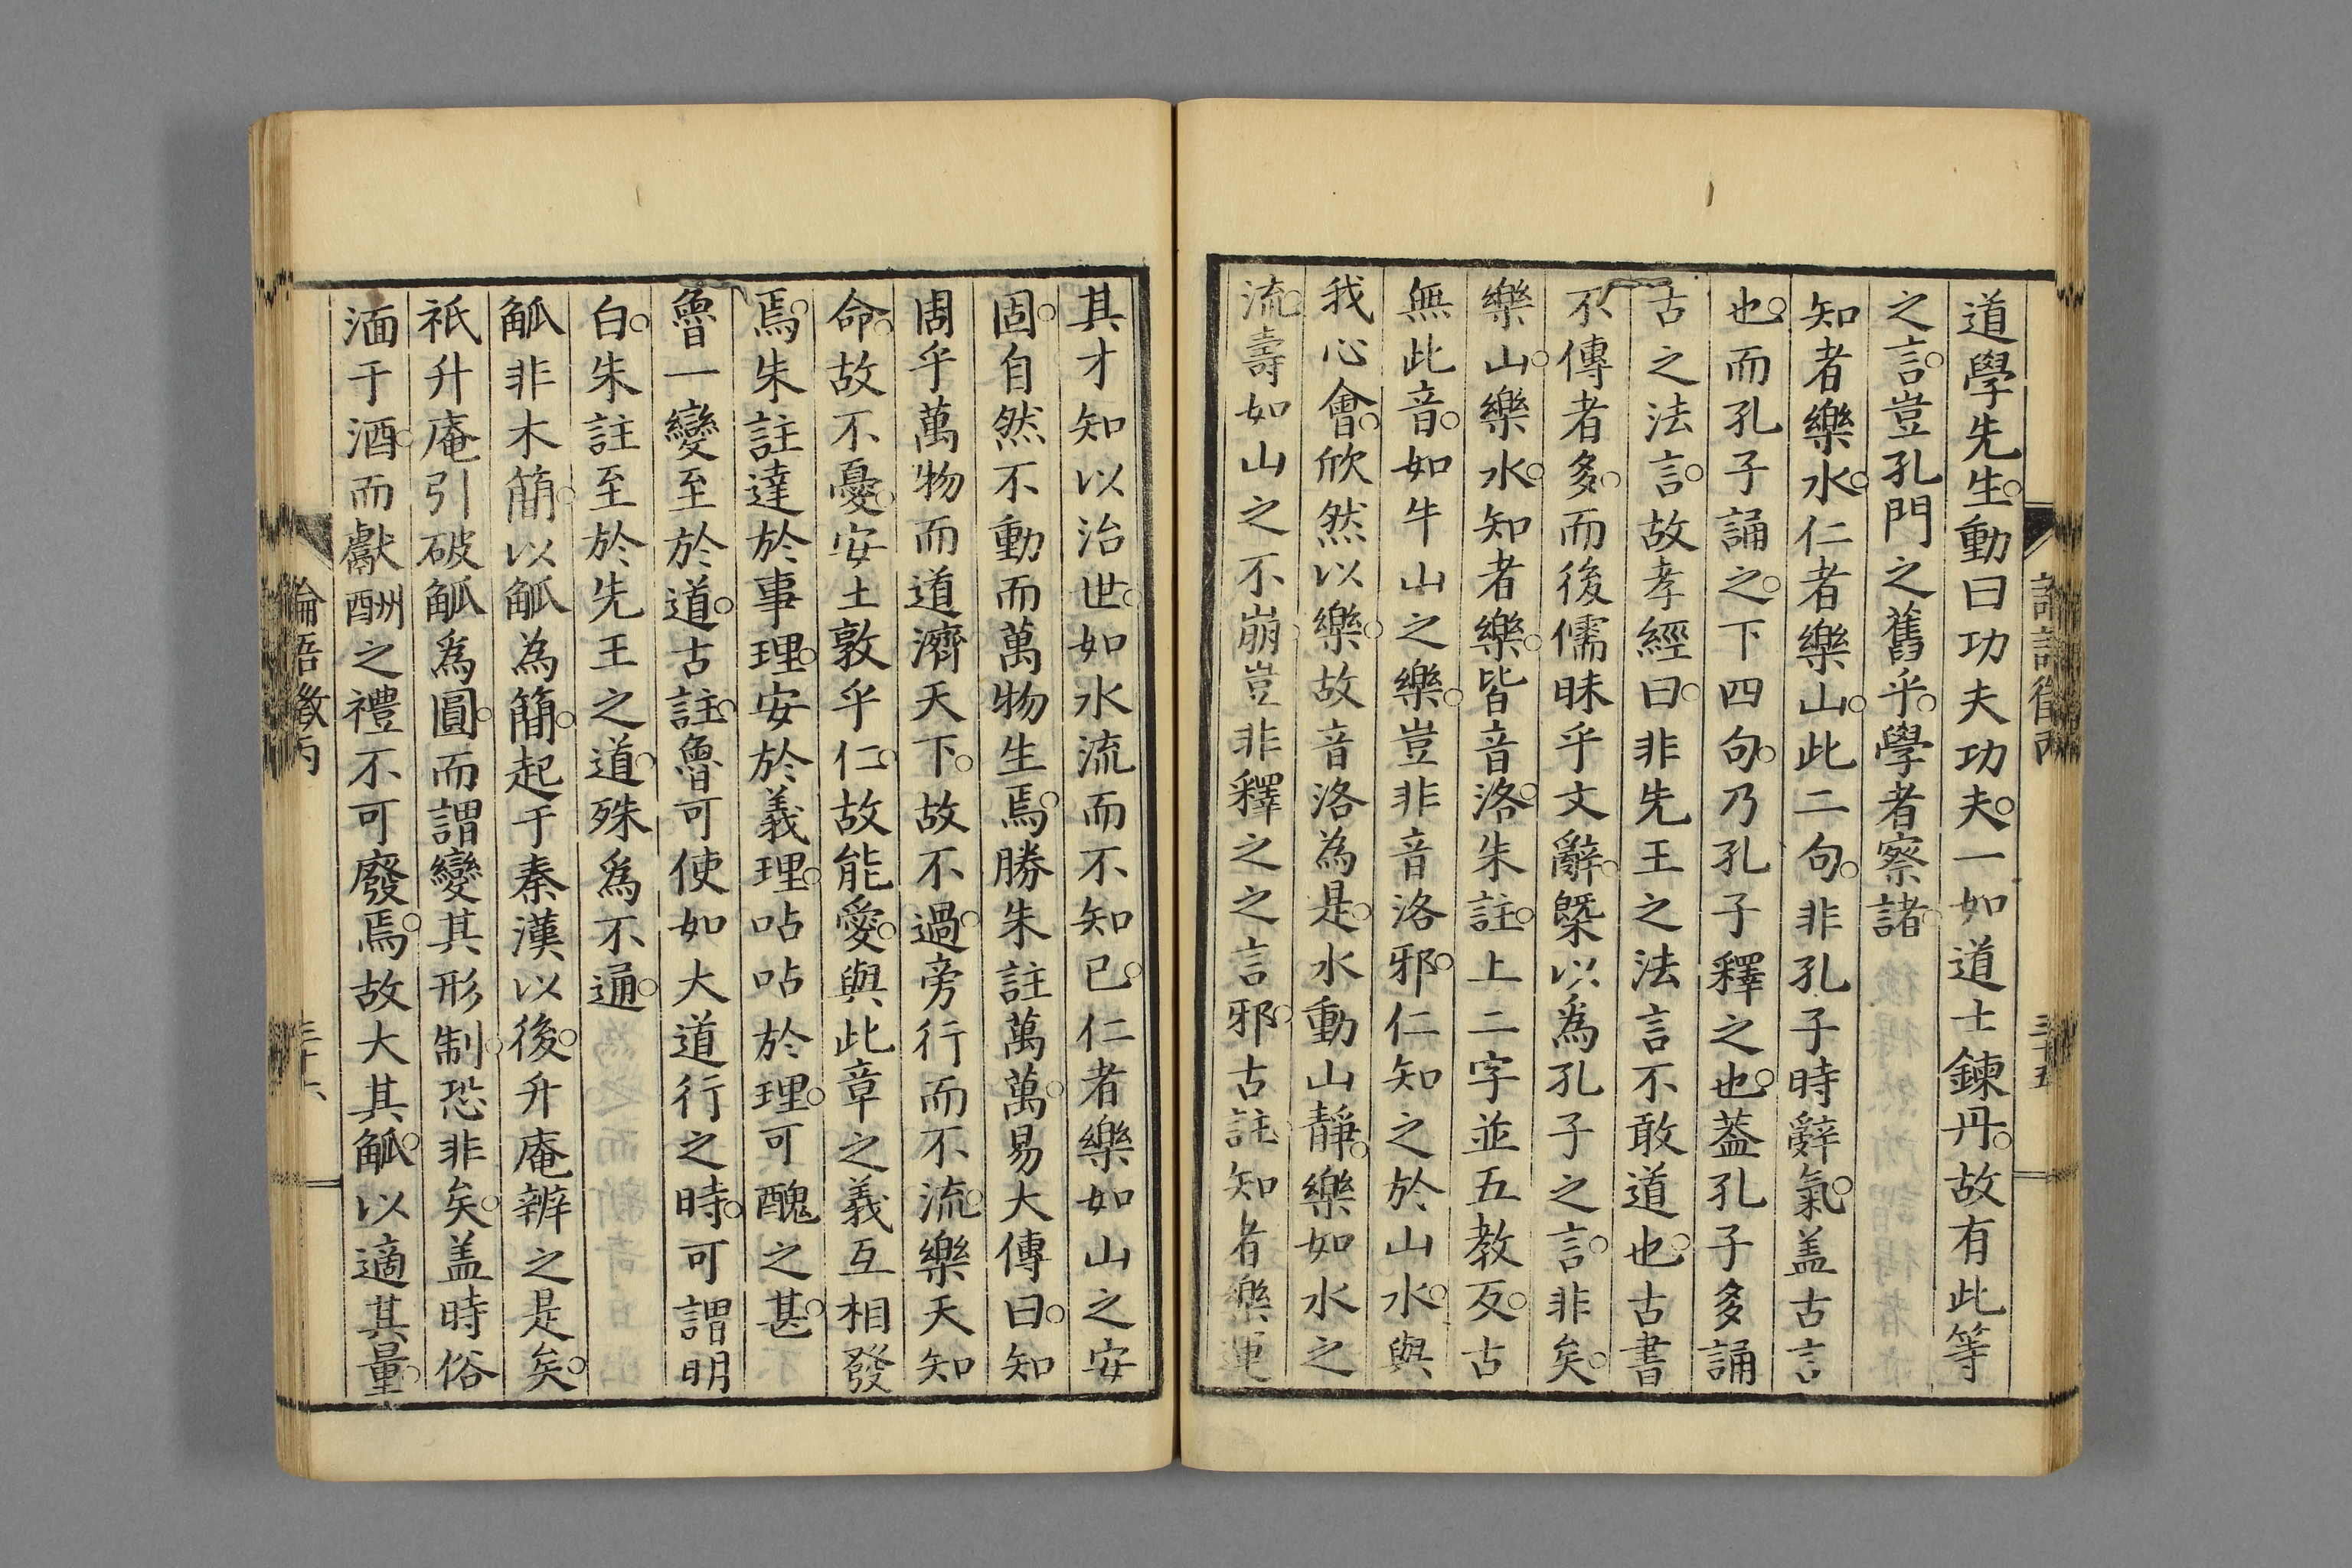 道學先生。動曰功夫功夫。一如道士鍊丹。故有此等
之言。豈孔門之舊乎。學者察諸。
知者樂水。仁者樂山。此二句。非孔子時辭氣。盖古言
也。而孔子誦之。下四句。乃孔子釋之也。蓋孔子多誦
古之法言。故孝經曰。非先王之法言不敢道也。古書
不傳者多。而後儒昧乎文辭。槩以爲孔子之言。非矣。
樂山。樂水。知者樂。皆音洛。朱註。上二字並五教反。古
無此音。如牛山之樂。豈非音洛邪。仁知之於山水。與
我心會。欣然以樂。故音洛為是。水動山靜。樂如水之
流。壽如山之不崩。豈非釋之之言邪。古註。知者樂運
其才知以治世。如水流而不知已。仁者樂如山之安
固。自然不動而萬物生焉。勝朱註萬萬。易大傳曰。知
周乎萬物而道濟天下。故不過。旁行而不流。樂天知
命。故不憂。安土敦乎仁。故能愛。與此章之義互相發
焉。朱註達於事理。安於義理。呫呫於理。可醜之甚。
魯一變至於道。古註。魯可使如大道行之時。可謂明
白。朱註至於先王之道。殊爲不通。
觚非木簡。以觚為簡。起于秦漢以後。升庵辨之是矣。
祇升庵引破觚爲圓。而謂變其形制。恐非矣。盖時俗
湎于酒。而獻酬之禮不可廢焉。故大其觚。以適其量。
論語徵丙
三十五
論語徵丙
三十六